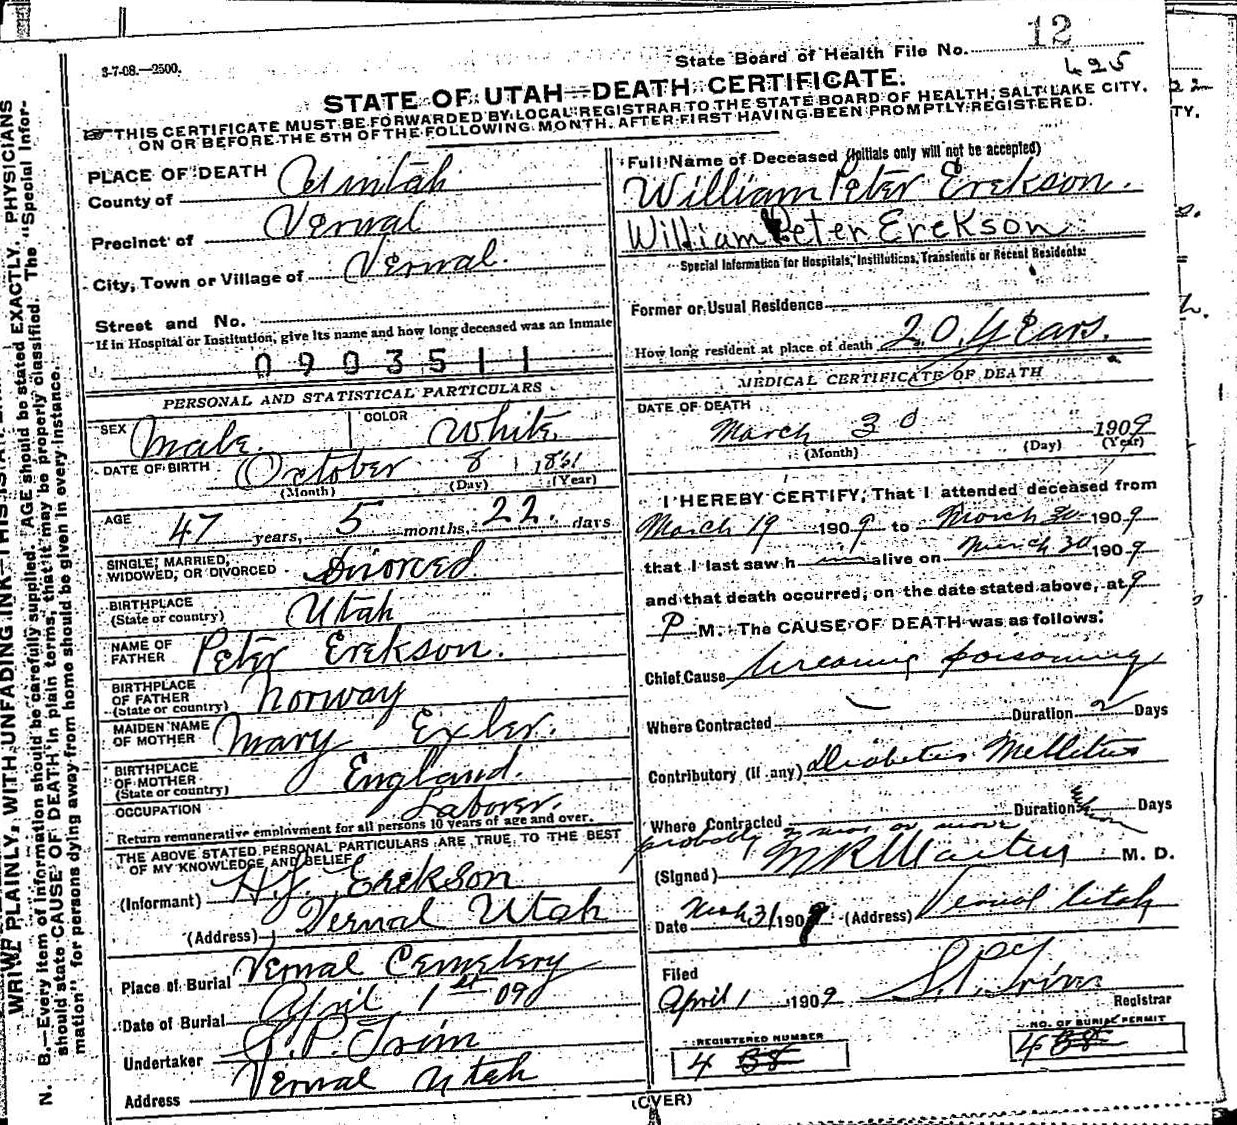 12
3-7-08.—2500.
State Board of Health File No.
425
STATE OF UTAH—DEATH CERTIFICATE.
THIS CERTIFICATE MUST BE FORWARDED BY LOCAL REGISTRAR TO THE STATE BOARD OF HEALTH, SALT LAKE CITY,
ON OR BEFORE THE 5TH OF THE FOLLOWING MONTH, AFTER FIRST HAVING BEEN PROMPTLY REGISTERED.
PLACE OF DEATH
County of Uintah
Precinct of Vernal
City, Town or Village of Vernal.
Street and No.
If in Hospital or Institution, give its name and how long deceased was an Inmate
0903511
PERSONAL AND STATISTICAL PARTICULARS
SEX Male. COLOR White
DATE OF BIRTH October 8 1861
(Month) (Day) (Year)
AGE 47 years, 5 months, 22. days
SINGLE, MARRIED, WIDOWED, OR DIVORCED Divorced
BIRTHPLACE (State or country) Utah
NAME OF FATHER Peter Erekson.
BIRTHPLACE OF FATHER (State or country) Norway
MAIDEN NAME OF MOTHER Mary Exler.
BIRTHPLACE OF MOTHER (State or country) England.
OCCUPATION Laborer.
Return remunerative employment for all persons 10 years of age and over.
THE ABOVE STATED PERSONAL PARTICULARS ARE TRUE TO THE BEST
OF MY KNOWLEDGE AND BELIEF
(Informant) H.J. Erekson
(Address) Vernal Utah
Place of Burial Vernal Cemetery
Date of Burial April 1st 09
Undertaker S.P. Trim
Address Vernal Utah
Full Name of Deceased (Initials only will not be accepted)
William Peter Erekson.
William Peter Erekson
Special Information for Hospitals, Institutions, Transients or Recent Residents:
Former or Usual Residence
How long resident at place of death 20 years.
MEDICAL CERTIFICATE OF DEATH
DATE OF DEATH
March 30 1909
(Month) (Day) (Year)
I HEREBY CERTIFY, That I attended deceased from
March 19 1909 to March 30 1909
that I last saw him alive on March 30 1909
and that death occurred, on the date stated above, at 9
P M. The CAUSE OF DEATH was as follows:
Chief Cause Uraemic poisoning
Where Contracted Duration 2 Days
Contributory (if any) Diabetes Mellitus
Where Contracted Duration Days
probably 2 mos or more
(Signed) M. D.
Date Mch 31 1909 (Address) Vernal Utah
Filed
April 1 1909 S.P. Trim
Registrar
REGISTERED NUMBER
4 38
NO. OF BURIAL PERMIT
438
(OVER)
N. B.—Every item of information should be carefully supplied. AGE should be stated EXACTLY. PHYSICIANS
should state CAUSE OF DEATH in plain terms, that it may be properly classified. The "Special Infor-
mation" for persons dying away from home should be given in every instance.